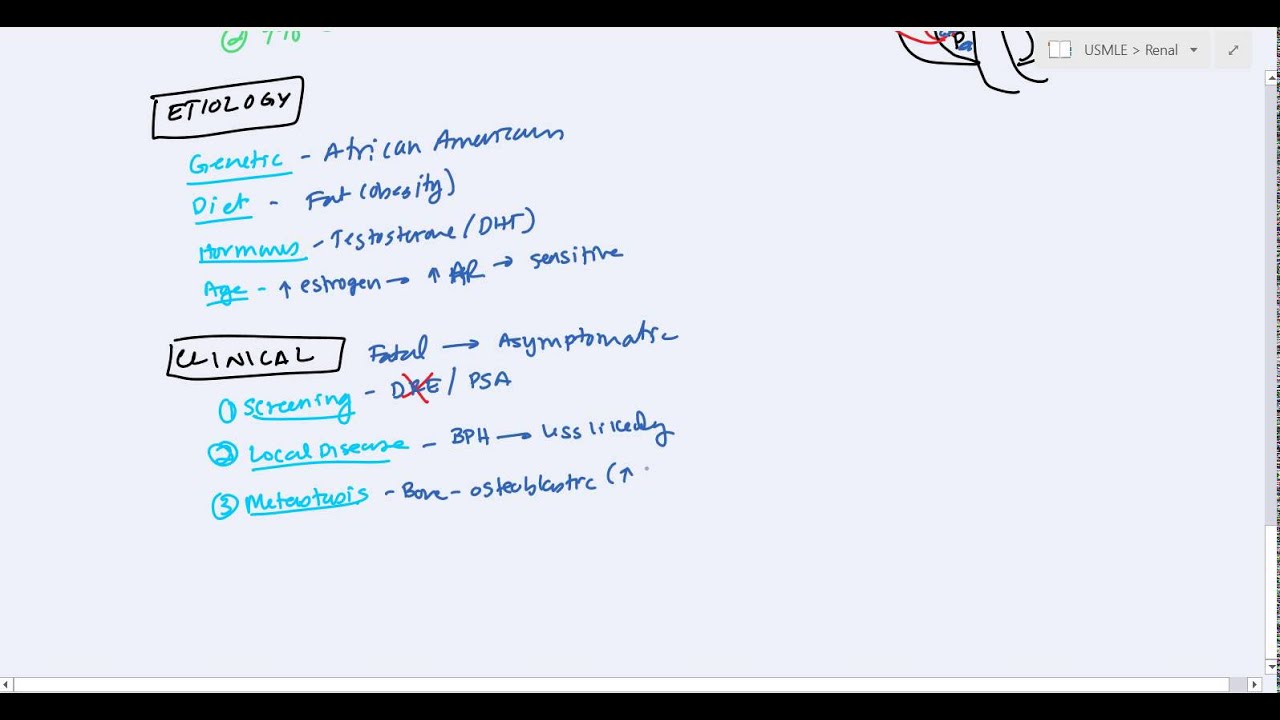 USMLE > Renal
Pa
ETIOLOGY
Genetic - African Americans
Diet - Fat (obesity)
Hormones - Testosterone / (DHT)
Age - ↑ estrogen → ↑ AR → sensitive
CLINICAL Fatal → Asymptomatic
① Screening - DRE / PSA
② Local Disease - BPH → less likely
③ Metastasis - Bone - osteoblastic (↑